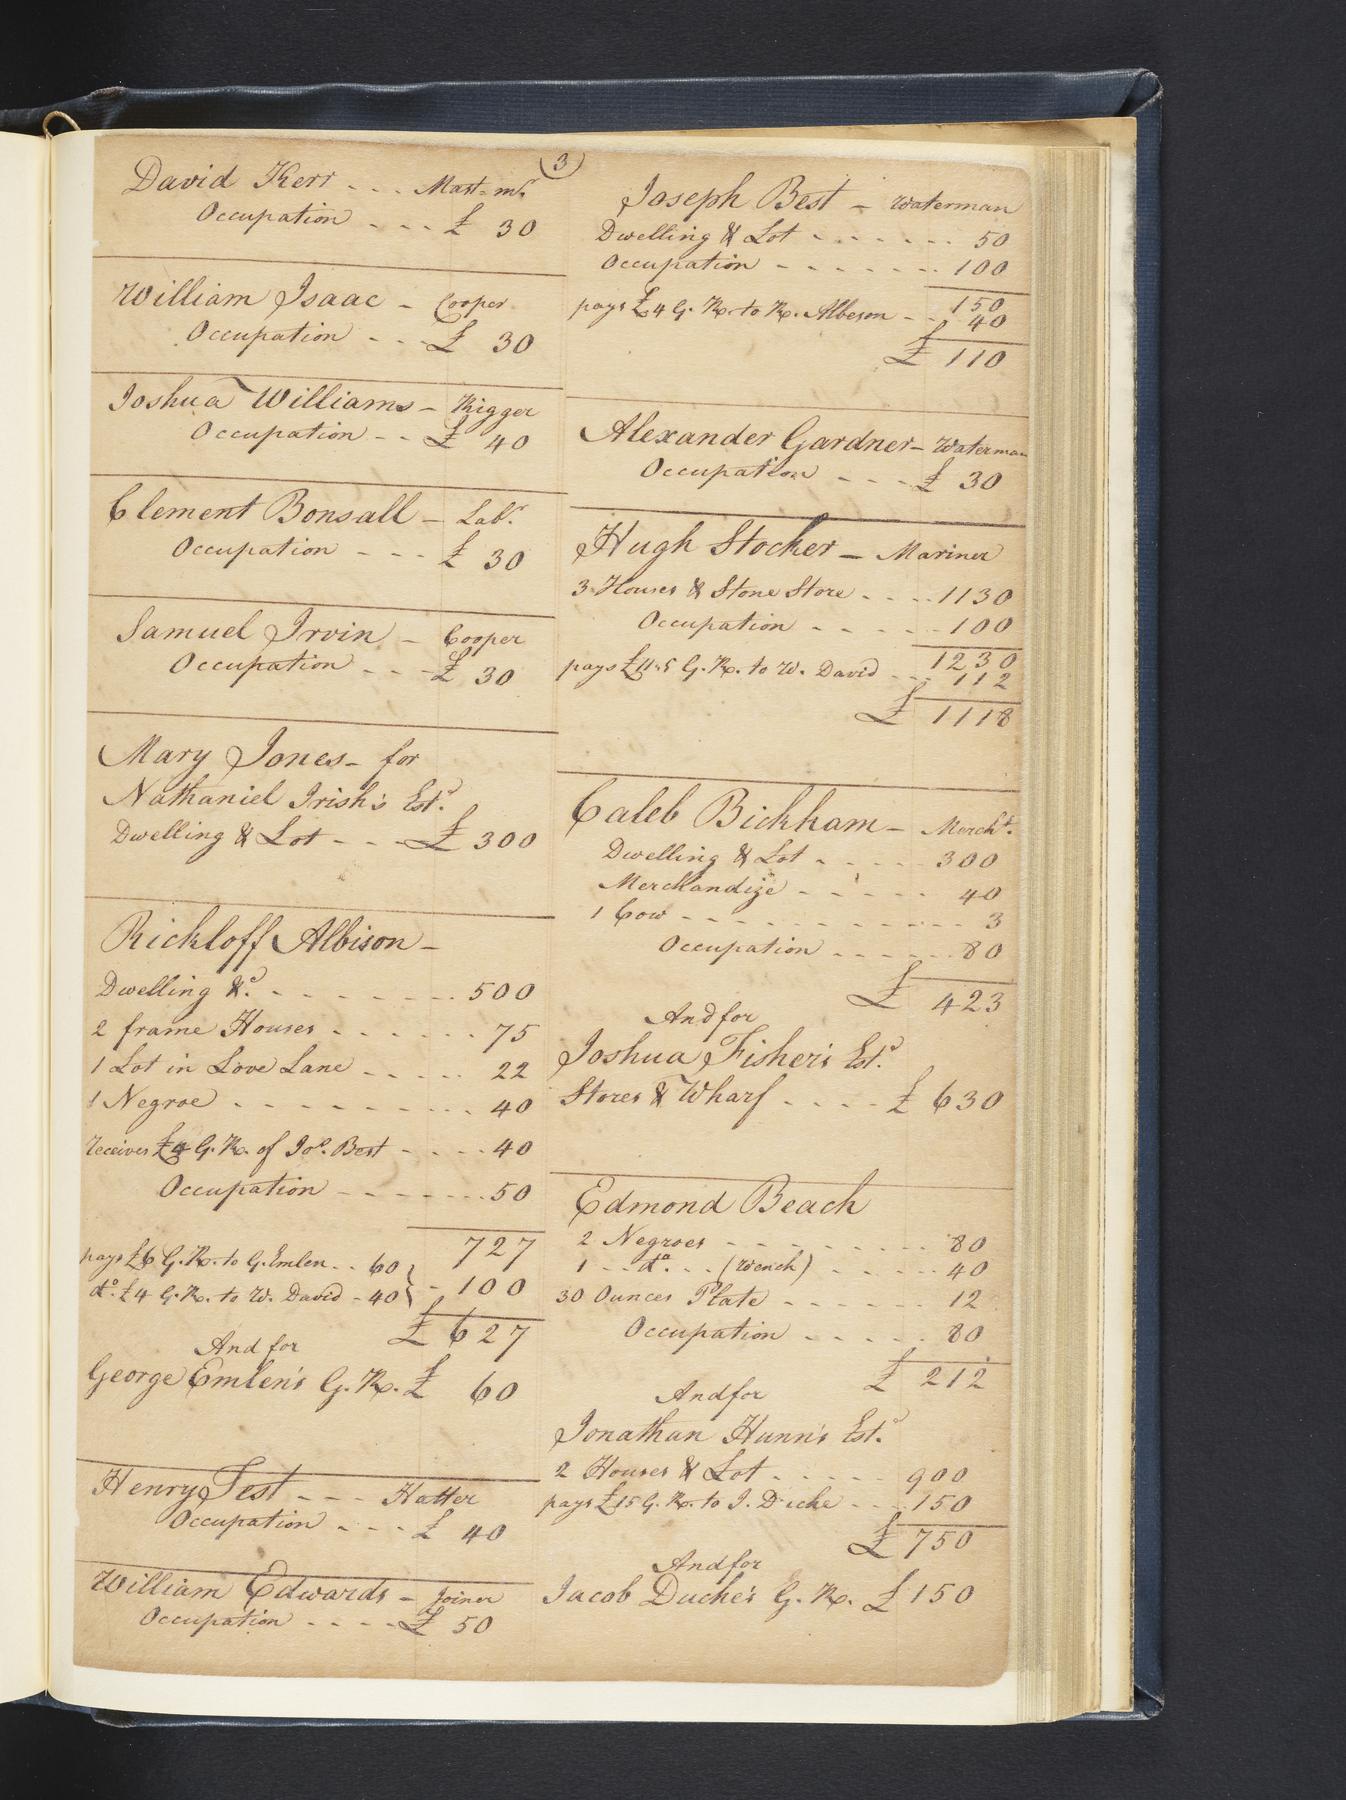 3
David Kerr - - - Mast. mr.
Occupation - - - £ 30
William Isaac - Cooper
Occupation - - - £ 30
Joshua Williams - Rigger
Occupation - - £ 40
Clement Bonsall - Labr.
Occupation - - - £ 30
Samuel Irvin - Cooper
Occupation - - - £ 30
Mary Jones - for
Nathaniel Irish's Estd.
Dwelling & Lot - - - £ 300
Rickloff Albison -
Dwelling &c. - - - - - - - 500
2 frame Houses - - - - - - 75
1 Lot in Love Lane - - - - - 22
1 Negroe - - - - - - - - - 40
receives £4 G. R. of Jos. Best - - - - 40
Occupation - - - - - - - 50
727
pays £6 G. R. to G. Emlen - - 60 }
do. £4 G. R. to W. David - 40 } - 100
£ 627
And for
George Emlen's G. R. £ 60
Henry Test - - - Hatter
Occupation - - - £ 40
William Edwards - Joiner
Occupation - - - - £ 50
Joseph Best - Waterman
Dwelling & Lot - - - - - - 50
Occupation - - - - - - - 100
150
pays £4 G. R. to R. Albeson - - 40
£ 110
Alexander Gardner - Waterman
Occupation - - - £ 30
Hugh Stocker - Mariner
3 Houses & Stone Store - - - - 1130
Occupation - - - - - 100
1230
pays £11.5 G. R. to W. David - - - 112
£ 1118
Caleb Bickham - Mercht.
Dwelling & Lot - - - - - 300
Merchandize - - - - - 40
1 Cow - - - - - - - - - - - - 3
Occupation - - - - - - 80
£ 423
And for
Joshua Fisher's Estd.
Stores & Wharf - - - - £ 630
Edmond Beach
2 Negroes - - - - - - - - - 80
1 - - do. - - (Wench) - - - - - 40
30 Ounces Plate - - - - - - 12
Occupation - - - - - 80
£ 212
And for
Jonathan Hunn's Estd.
2 Houses & Lot - - - - - 900
pays £15 G. R. to J. Duche - - - 150
£ 750
And for
Jacob Duche's G. R. £ 150